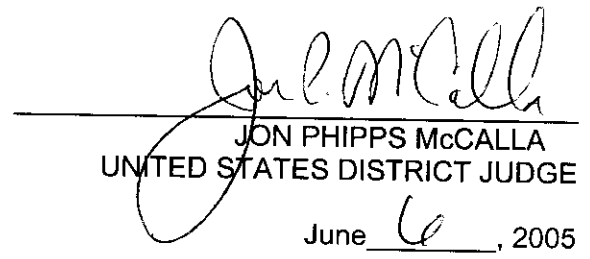 Jon P. McCalla
JON PHIPPS McCALLA
UNITED STATES DISTRICT JUDGE
June 6, 2005